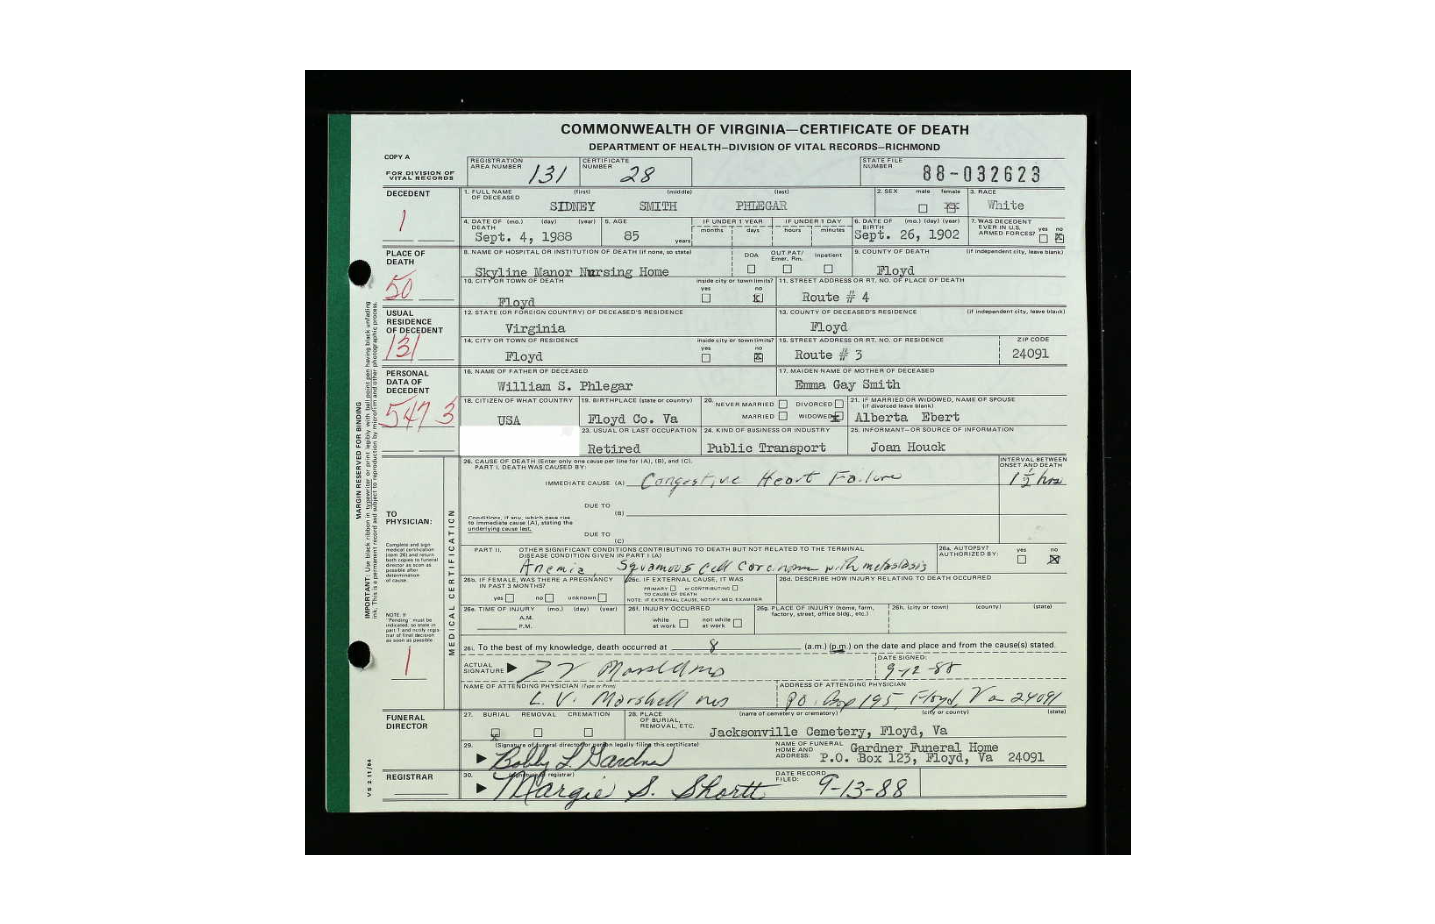 COMMONWEALTH OF VIRGINIA—CERTIFICATE OF DEATH
DEPARTMENT OF HEALTH—DIVISION OF VITAL RECORDS—RICHMOND
COPY A
FOR DIVISION OF VITAL RECORDS
REGISTRATION AREA NUMBER 131
CERTIFICATE NUMBER 28
STATE FILE NUMBER 88-032623
DECEDENT
1
1. FULL NAME OF DECEASED (first) (middle) (last)
SIDNEY SMITH PHLEGAR
2. SEX male female
3. RACE White
4. DATE OF DEATH (mo.) (day) (year) Sept. 4, 1988
5. AGE 85 years
IF UNDER 1 YEAR months days
IF UNDER 1 DAY hours minutes
6. DATE OF BIRTH (mo.) (day) (year) Sept. 26, 1902
7. WAS DECEDENT EVER IN U.S. ARMED FORCES? yes no
PLACE OF DEATH
50
8. NAME OF HOSPITAL OR INSTITUTION OF DEATH (if none, so state)
Skyline Manor Nursing Home
DOA OUT PAT/ Emer. Rm. Inpatient
9. COUNTY OF DEATH (if independent city, leave blank)
Floyd
10. CITY OR TOWN OF DEATH inside city or town limits? yes no
Floyd
11. STREET ADDRESS OR RT. NO. OF PLACE OF DEATH
Route # 4
USUAL RESIDENCE OF DECEDENT
131
12. STATE (OR FOREIGN COUNTRY) OF DECEASED'S RESIDENCE
Virginia
13. COUNTY OF DECEASED'S RESIDENCE (if independent city, leave blank)
Floyd
14. CITY OR TOWN OF RESIDENCE inside city or town limits? yes no
Floyd
15. STREET ADDRESS OR RT. NO. OF RESIDENCE
Route # 3
ZIP CODE
24091
PERSONAL DATA OF DECEDENT
547 3
16. NAME OF FATHER OF DECEASED
William S. Phlegar
17. MAIDEN NAME OF MOTHER OF DECEASED
Emma Gay Smith
18. CITIZEN OF WHAT COUNTRY
USA
19. BIRTHPLACE (state or country)
Floyd Co. Va
20. NEVER MARRIED DIVORCED
MARRIED WIDOWED
21. IF MARRIED OR WIDOWED, NAME OF SPOUSE (if divorced leave blank)
Alberta Ebert
23. USUAL OR LAST OCCUPATION
Retired
24. KIND OF BUSINESS OR INDUSTRY
Public Transport
25. INFORMANT—OR SOURCE OF INFORMATION
Joan Houck
MARGIN RESERVED FOR BINDING
TO PHYSICIAN:
Complete and sign medical certification (item 26) and return both copies to funeral director as soon as possible after determination of cause.
NOTE: If "Pending" must be indicated, so state in part 1 and notify registrar of final decision as soon as possible
1
MEDICAL CERTIFICATION
26. CAUSE OF DEATH (Enter only one cause per line for (A), (B), and (C).
PART I. DEATH WAS CAUSED BY:
INTERVAL BETWEEN ONSET AND DEATH
IMMEDIATE CAUSE (A) Congestive Heart Failure 1 1/2 hrs
DUE TO
(B)
Conditions, if any, which gave rise to immediate cause (A), stating the underlying cause last.
DUE TO
(C)
PART II. OTHER SIGNIFICANT CONDITIONS CONTRIBUTING TO DEATH BUT NOT RELATED TO THE TERMINAL DISEASE CONDITION GIVEN IN PART I (A)
Anemia, Squamous cell carcinoma with metastasis
26a. AUTOPSY? AUTHORIZED BY: yes no
26b. IF FEMALE, WAS THERE A PREGNANCY IN PAST 3 MONTHS?
yes no unknown
26c. IF EXTERNAL CAUSE, IT WAS
PRIMARY or CONTRIBUTING
TO CAUSE OF DEATH
NOTE: IF EXTERNAL CAUSE, NOTIFY MED. EXAMINER
26d. DESCRIBE HOW INJURY RELATING TO DEATH OCCURRED
26e. TIME OF INJURY (mo.) (day) (year)
A.M.
P.M.
26f. INJURY OCCURRED
while at work not while at work
26g. PLACE OF INJURY (home, farm, factory, street, office bldg., etc.)
26h. (city or town) (county) (state)
26i. To the best of my knowledge, death occurred at 8 (a.m.) (p.m.) on the date and place and from the cause(s) stated.
ACTUAL SIGNATURE
DATE SIGNED: 9-12-88
NAME OF ATTENDING PHYSICIAN (Type or Print)
L. V. Marshall MD
ADDRESS OF ATTENDING PHYSICIAN
P.O. Box 195, Floyd, Va 24091
FUNERAL DIRECTOR
27. BURIAL REMOVAL CREMATION
28. PLACE OF BURIAL, REMOVAL, ETC. (name of cemetery or crematory) (city or county) (state)
Jacksonville Cemetery, Floyd, Va
29. (Signature of funeral director or person legally filing this certificate)
Bobby L. Gardner
NAME OF FUNERAL HOME AND ADDRESS: Gardner Funeral Home
P.O. Box 123, Floyd, Va 24091
REGISTRAR
30. (Signature of registrar)
Margie S. Shortt
DATE RECORD FILED: 9-13-88
VS 2 11/84